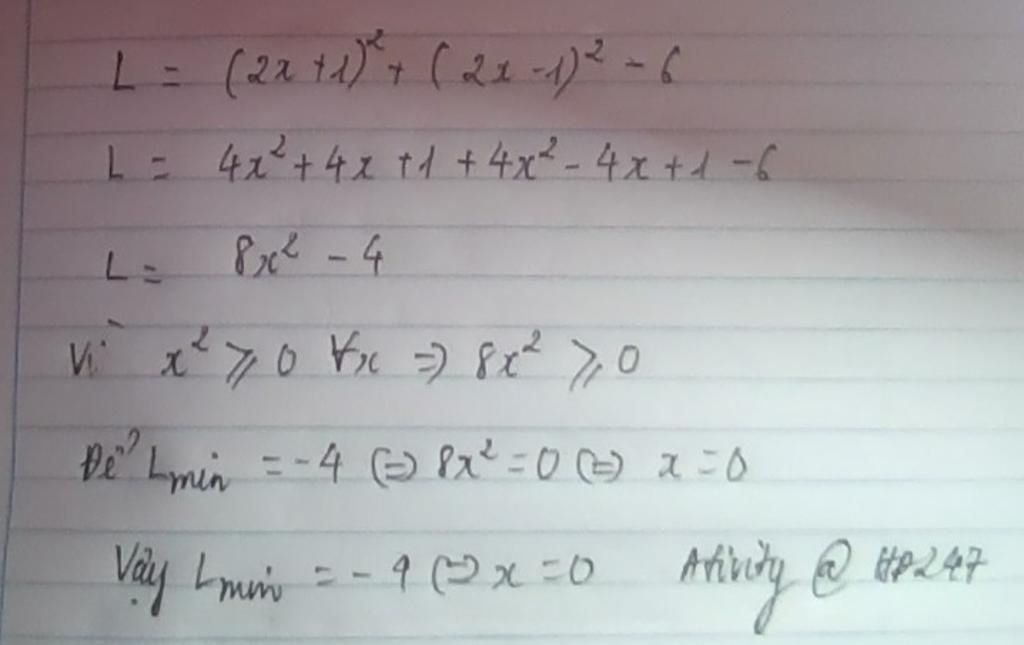 L = (2x+1)² + (2x-1)² - 6
L = 4x² + 4x + 1 + 4x² - 4x + 1 - 6
L = 8x² - 4
Vì x² ⩾ 0 ∀x ⇒ 8x² ⩾ 0
Để Lmin = -4 (=) 8x² = 0 (=) x = 0
Vậy Lmin = -4 (=) x = 0 @